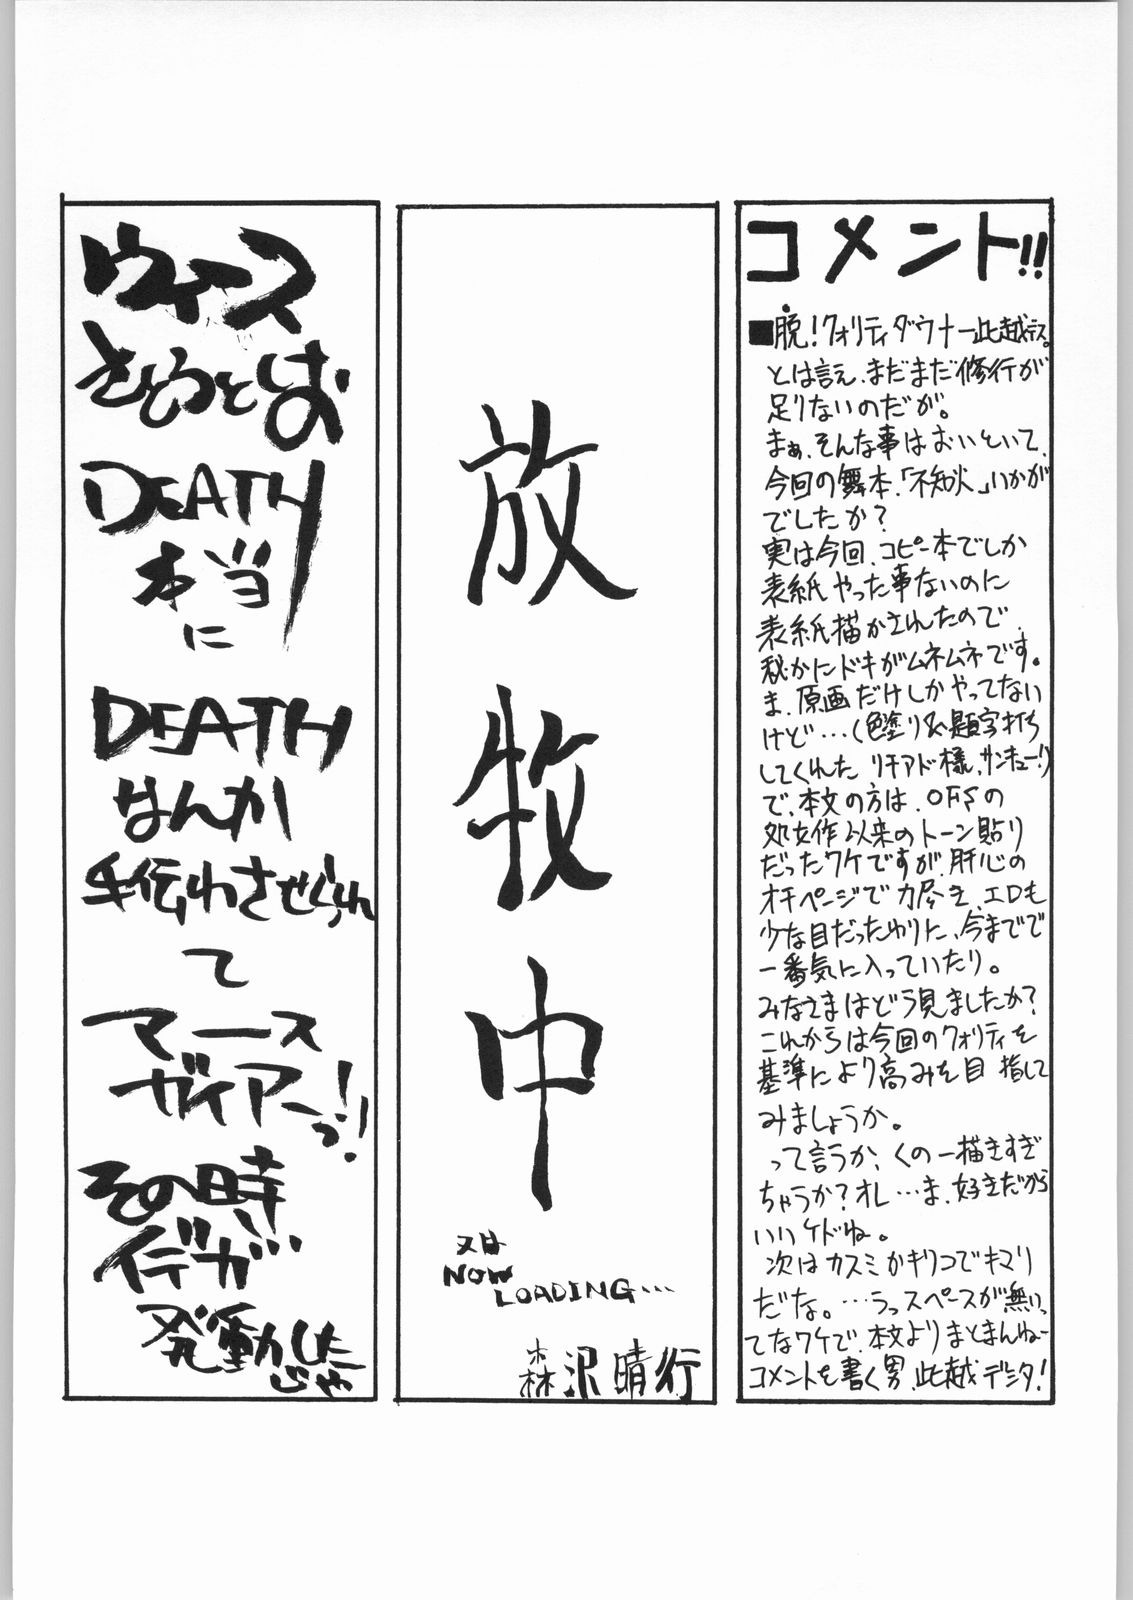 コメント!!
■脱!クォリティダウナー此越デス。
とは言え、まだまだ修行が
足りないのだが。
まぁ、そんな事はおいといて、
今回の舞本、「不知火」いかが
でしたか?
実は今回、コピー本でしか
表紙やった事ないのに
表紙描かされたので、
秘かにドキがムネムネです。
ま、原画だけしかやってない
けど…(色塗り&題字打ち
してくれた リチアド様、サンキュー!)
で、本文の方は、OFSの
処女作以来のトーン貼り
だったワケですが、肝心の
オチページで力尽き、エロも
少な目だったわりに、今までで
一番気に入っていたり。
みなさまはどう見ましたか?
これからは今回のクォリティを
基準により高みを目指して
みましょうか。
って言うか、くの一描きすぎ
ちゃうか?オレ…ま、好きだから
いいケドね。
次はカスミかキリコでキマリ
だな。…うっスペースが無いっ
てなワケで、本文よりまとまんねー
コメントを書く男、此越デジタ!
放牧中
又は
NOW
LOADING...
森沢晴行
ウィース
さとうとしお
DEATH
本当に
DEATH
なんか
手伝わさせられ
て
マース
ガイアーっ!!
その時
イデが…
発動した
じゃ